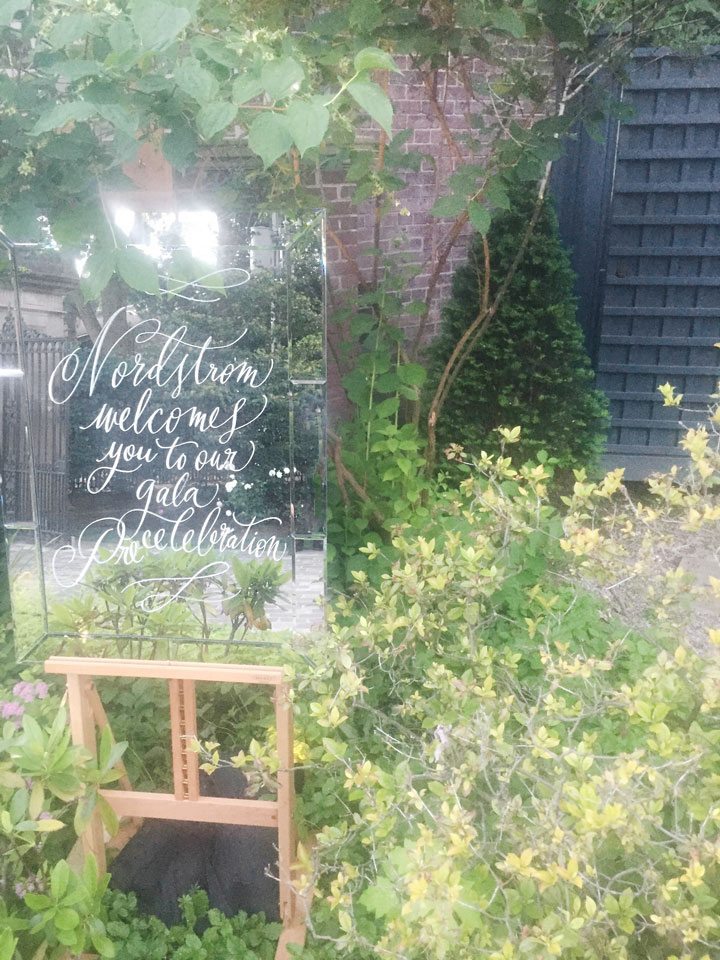 Nordstrom
welcomes
you to our
gala
Pre celebration